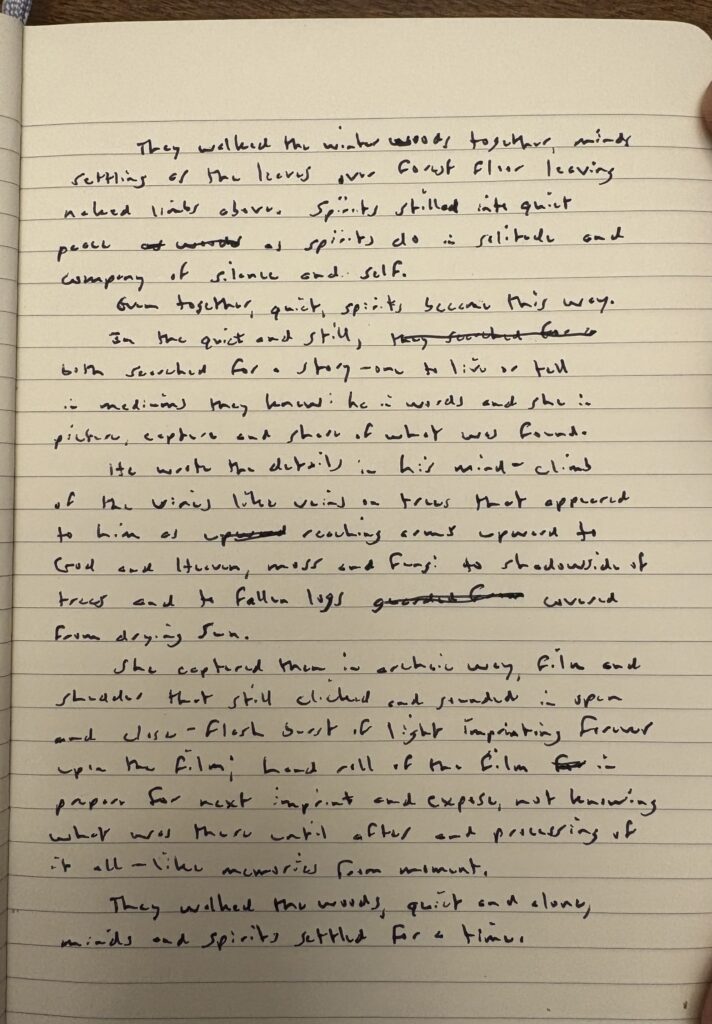 They walked the winter woods together, minds
settling as the leaves over forest floor leaving
naked limbs above. Spirits stilled into quiet
peace as woods as spirits do in solitude and
company of silence and self.
Even together, quiet, spirits become this way.
In the quiet and still, they searched for a
both searched for a story - one to live or tell
in mediums they knew: he in words and she in
picture, capture and share of what was found.
He wrote the details in his mind - climb
of the vines like veins on trees that appeared
to him as upward reaching arms upward to
God and Heaven, moss and fungi to shadowside of
trees and to fallen logs guarded from covered
from drying sun.
She captured them in archaic way, film and
shudder that still clicked and sounded in open
and close - flash burst of light imprinting forever
upon the film; hand roll of the film for in
prepare for next imprint and expose, not knowing
what was there until after and processing of
it all - like memories from moment.
They walked the woods, quiet and alone,
minds and spirits settled for a time.